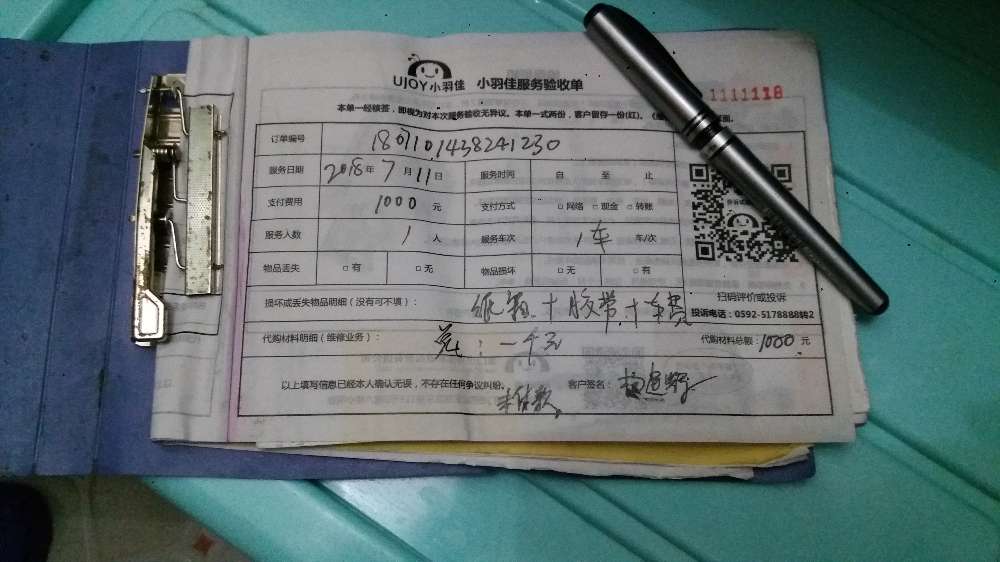 UJOY小羽佳 小羽佳服务验收单
1111118
本单一经核签，即视为对本次服务验收无异议。本单一式两份，客户留存一份(红)。
订单编号 1807101438241230
服务日期 2018年7月11日 服务时间 自 至 止
支付费用 1000 元 支付方式 □网络 □现金 □转账
服务人数 1 人 服务车次 1车 车/次
物品丢失 □有 □无 物品损坏 □无 □有
扫码评价或投诉
损坏或丢失物品明细（没有可不填）： 纸箱+胶带+车费
投诉电话：0592-5178888转2
代购材料明细（维修业务）： 共：一千元 代购材料总额：1000元
以上填写信息已经本人确认无误，不存在任何争议纠纷。 客户签名：
未付款